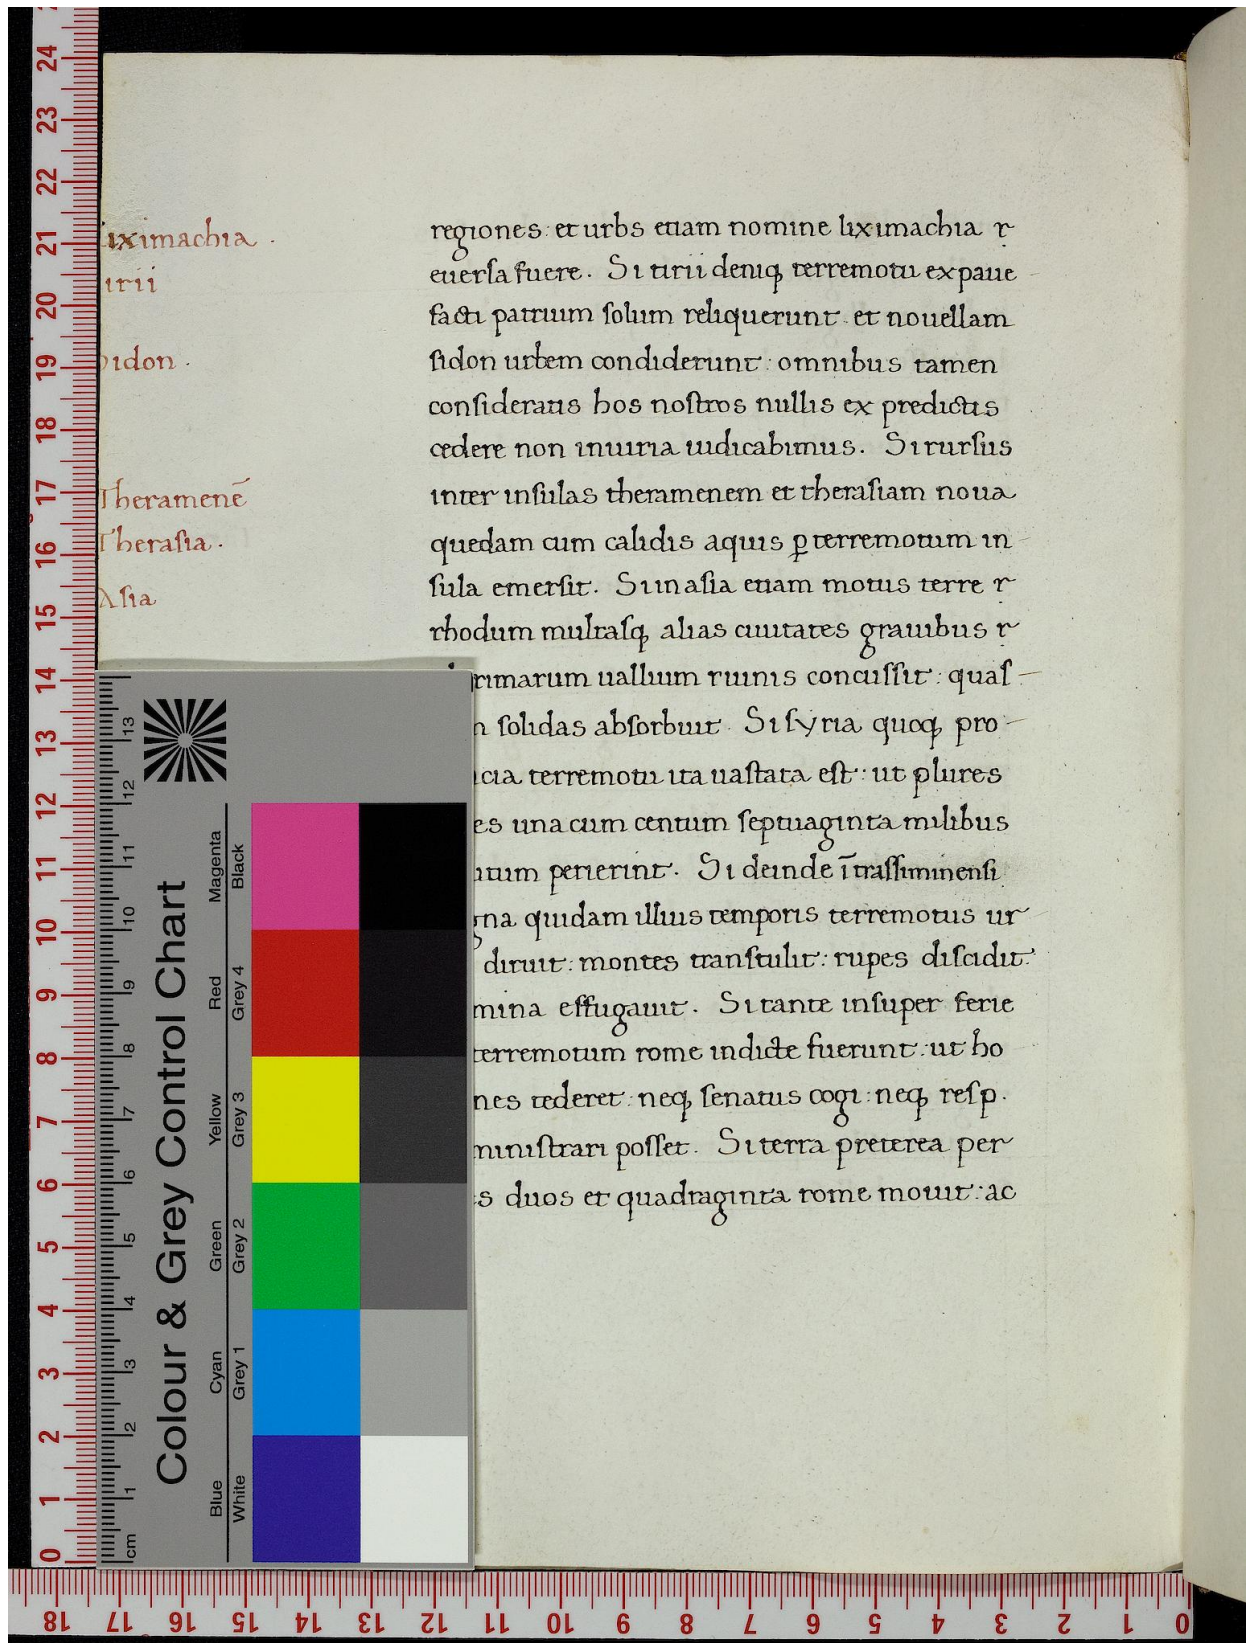 iximachia .
irii
idon .
Theramenē
Therasia .
Asia
regiones : et urbs etiam nomine liximachia r
euersa fuere . Si tirii deniqꝫ terremotu expaue
facti patrium solum reliquerunt et nouellam
sidon urbem condiderunt : omnibus tamen
consideratis hos nostros nullis ex predictis
cedere non iniuria iudicabimus . Si rursus
inter insulas theramenem et therasiam noua
quedam cum calidis aquis ꝑ terremotum in
sula emersit . Si in asia etiam motus terre r
rhodum multasqꝫ alias ciuitates grauibus r
rimarum uallium ruinis concussit : quas
solidas absorbuit . Si syria quoqꝫ pro
cia terremotu ita uastata est : ut plures
es una cum centum septuaginta milibus
perierint . Si deinde ī trassiminensi
gna quidam illius temporis terremotus ur
diruit : montes transtulit : rupes discidit :
mina effugauit . Si tante insuper ferie
terremotum rome indicte fuerunt : ut ho
nes tederet : neqꝫ senatus cogi : neqꝫ resp .
ministrari posset . Si terra preterea per
s duos et quadraginta rome mouit : ac
Colour & Grey Control Chart
Blue Cyan Green Yellow Red Magenta
White Grey 1 Grey 2 Grey 3 Grey 4 Black
cm 1 2 3 4 5 6 7 8 9 10 11 12 13
24
23
22
21
20
19
18
17
16
15
14
13
12
11
10
9
8
7
6
5
4
3
2
1
0
18 17 16 15 14 13 12 11 10 9 8 7 6 5 4 3 2 1 0